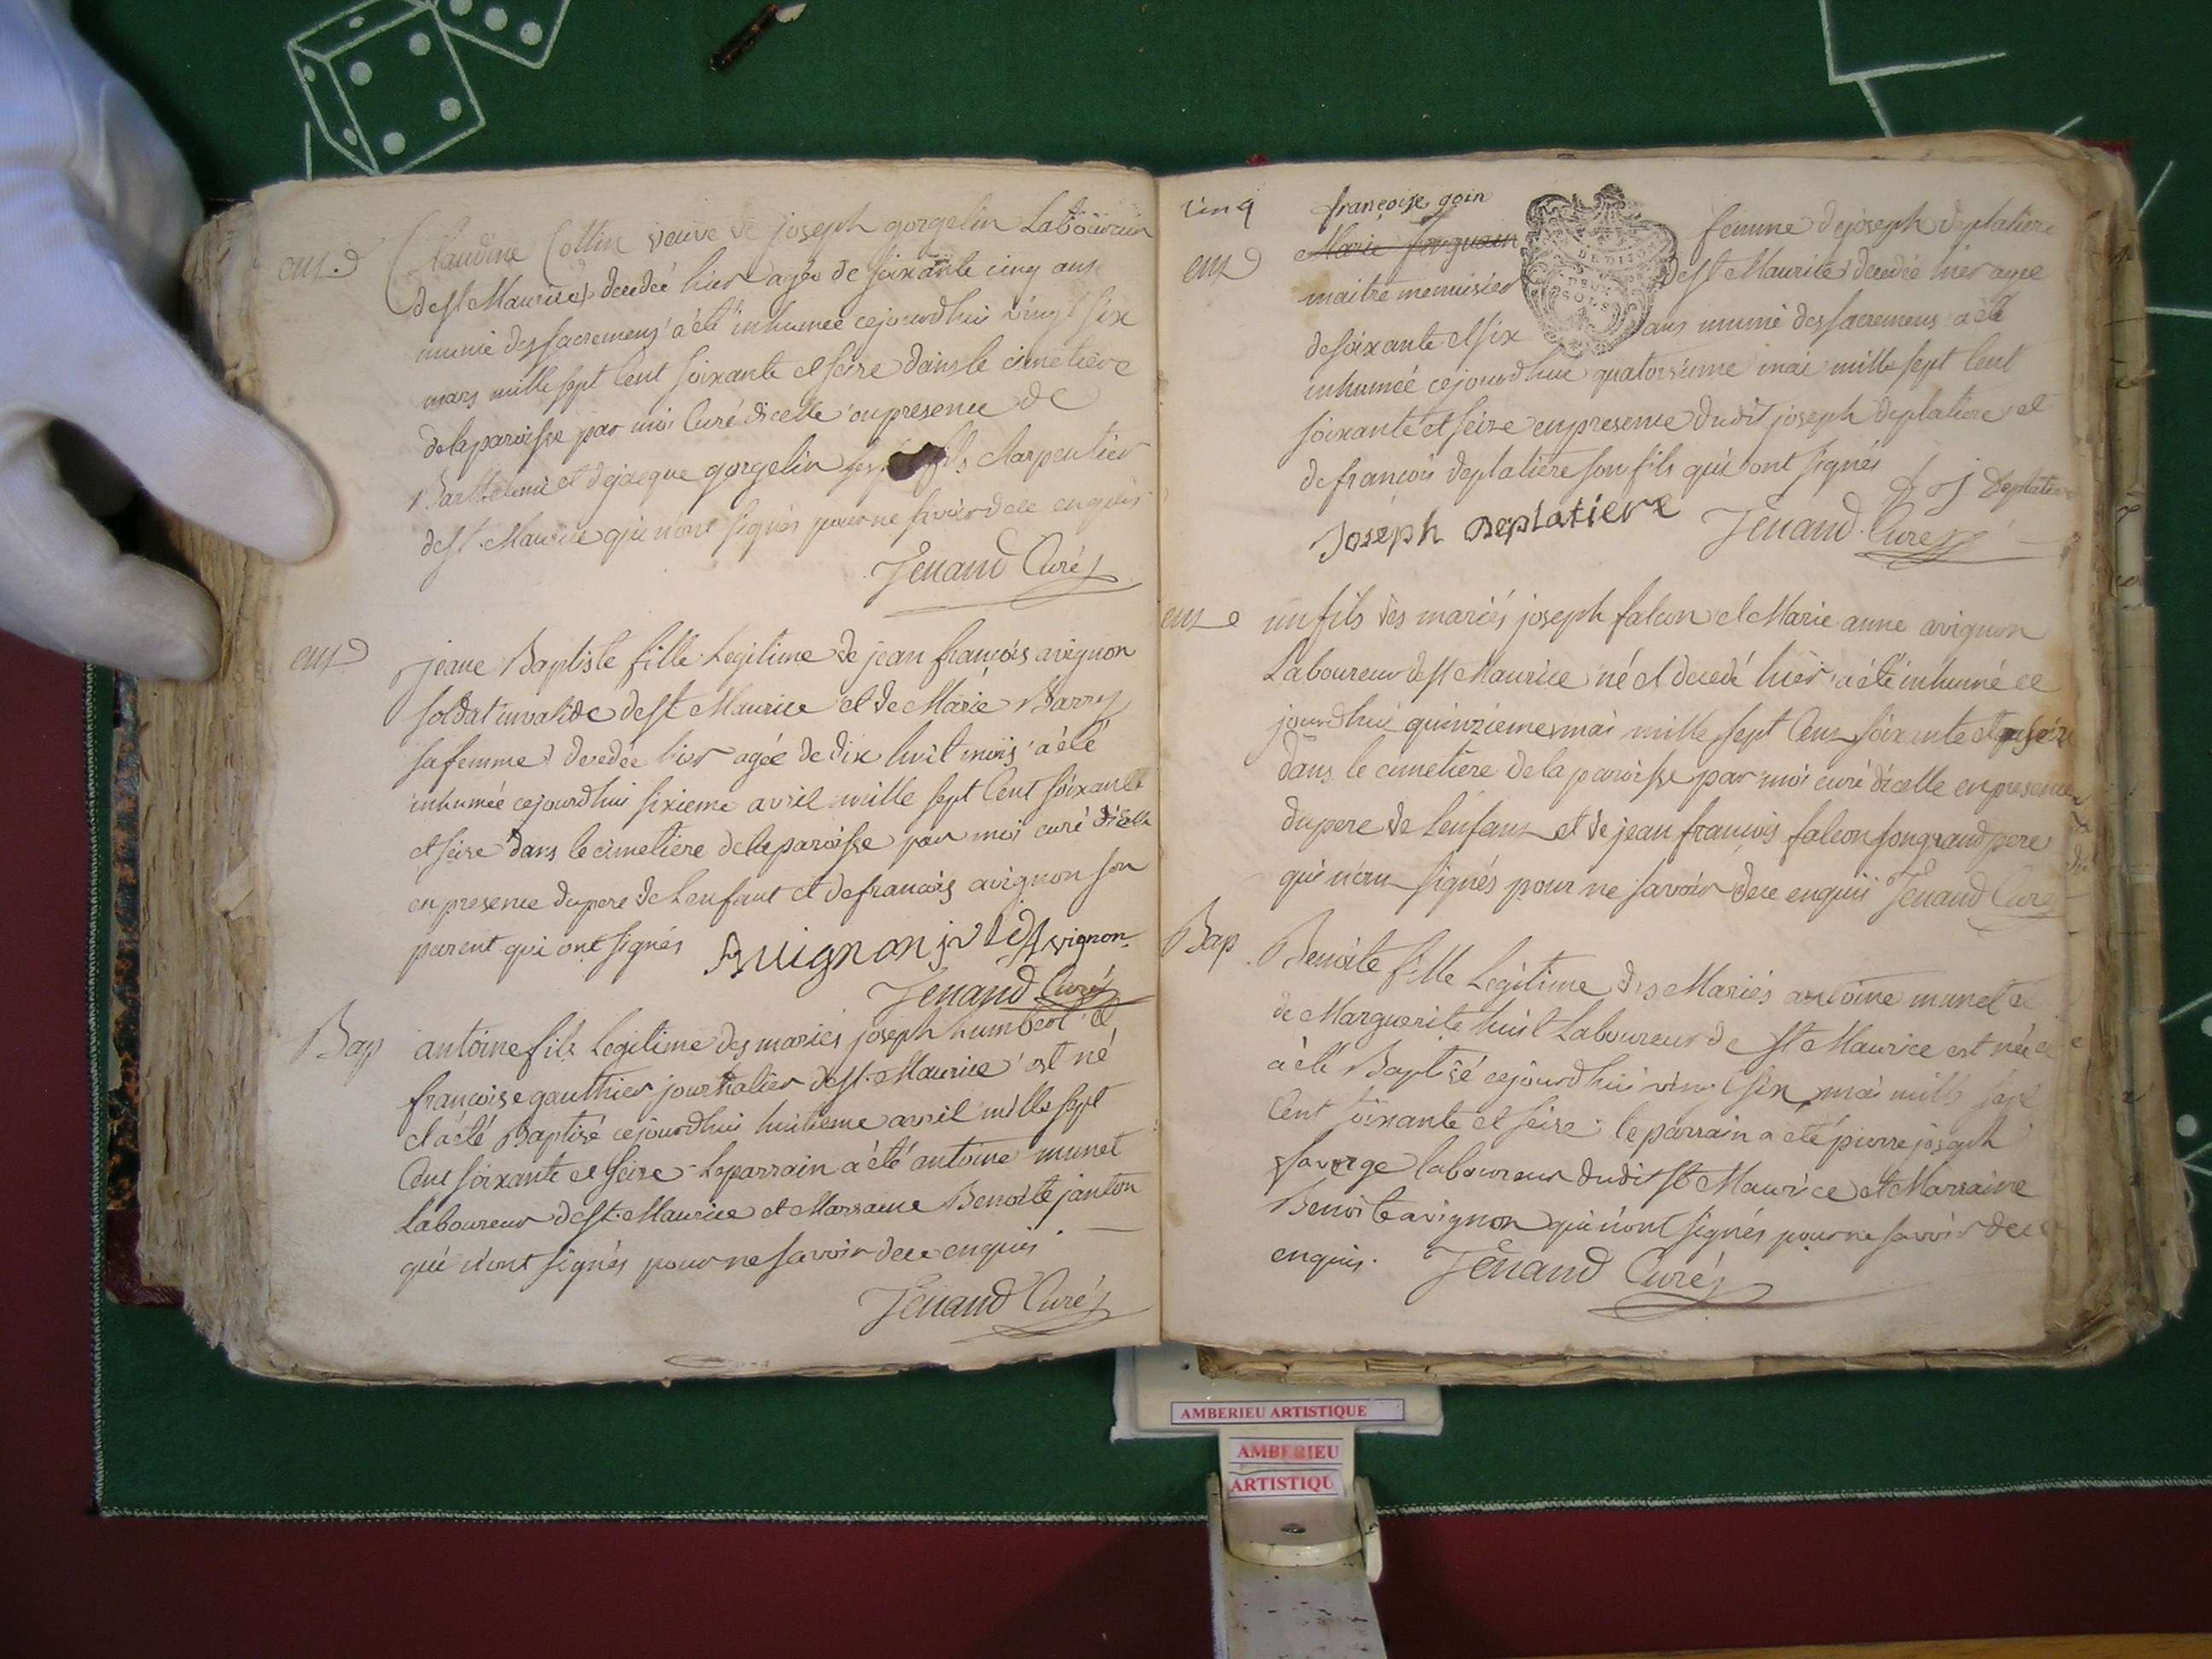 ent. Claudine Collin veuve de joseph gorgelin Laboureur
de st Maurice decedeé hier ageé de soixante cinq ans
munie des sacremens a èté inhumeé cejourdhui vingt six
mars mille sept Cent soixante et seise dans le cimetière
de la paroisse par moi Curé dicelle en presence de
Barthelemi et de jacque gorgelin ses fils charpentier
de st. Maurice qui nont signés pour ne savoir de ce enquis
Jenand Curé
ent jeane Baptiste fille Legitime de jean francois avignon
soldat invalide de st Maurice et de Marie Barry
sa femme decedeé hier ageé de dix huit mois a èté
inhumée cejourdhui sixieme avril mille sept Cent soixante
et seise dans le cimetière de la paroisse par moi curé dicelle
en presence du pere de Lenfant et de francois avignon son
parent qui ont signés Avignon avignon
Jenand Curé
Bap antoine fils Legitime des mariés joseph humbert et
francoise gauthier journalier de st. Maurice est né
et a èté Baptisé cejourdhui huitieme avril mille sept
Cent soixante et seise Le parrain a èté antoine munet
Laboureur de st. Maurice et Marraine Benoite janton
qui n'ont signés pour ne savoir de ce enquis.
Jenand Curé
cinq françoise goin
ent Marie femme de joseph deplatiere
maitre menuisier de st Maurice decedée hier agee
de soixante et six ans munie des sacremens a èté
inhumeé cejourdhui quatorsieme mai mille sept Cent
soixante et seize en presence dudit joseph deplatiere et
de francois deplatiere son fils qui ont signés
Joseph Deplatiere Jenand Curé
Deplatiere
ent un fils des mariés joseph falcon et Marie anne avignon
Laboureur de st Maurice né et decedé hier a èté inhumé ce
jourdhui quinzieme mai mille sept Cent soixante et seize
dans le cimetiere de la paroisse par moi curé dicelle en presence
du pere de lenfant et de jean francois falcon son grand pere
qui n'ont signés pour ne savoir de ce enquis Jenand Curé
Bap Benoite fille Legitime des Mariés antoine munet et
de Marguerite huit Laboureur de st Maurice est neé et
a èté Baptisé cejourdhui vingt six mai mille sept
Cent soixante et seise le parrain a eté pierre joseph
favorge laboureur dudit st Maurice et Marraine
Benoite avignon qui n'ont signés pour ne savoir de ce
enquis. Jenand Curé
AMBERIEU ARTISTIQUE
AMBERIEU
ARTISTIQU